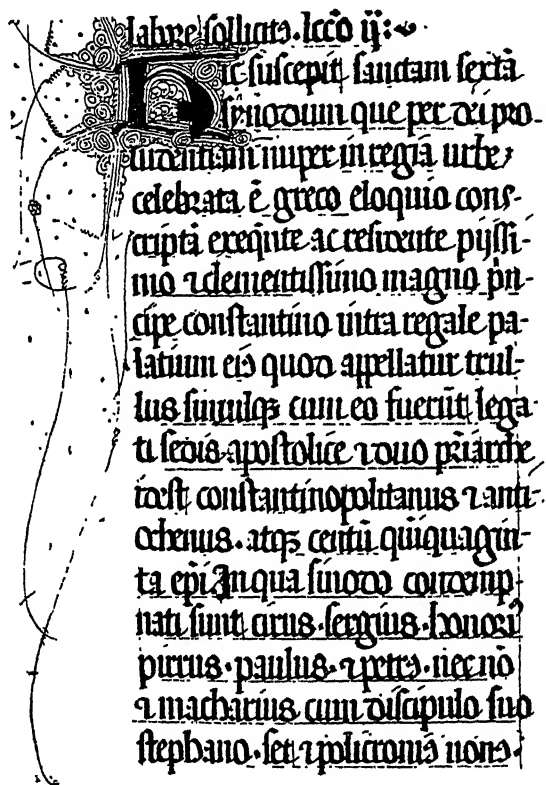 labore sollicitꝰ. lcc̄o ij:
Hic suscepit sanctam sextā
synodum que per dei pro-
uidentiam nuper in regiā urbe
celebrata ē greco eloquio cons-
criptā exeqn̄te ac residente pijssi-
mo ⁊ clementissimo magno p̄n-
cipe constantino intra regale pa-
latium eiꝰ quod appellatur trul-
lus simulqꝫ cum eo fuerūt lega-
ti sedis apostolice ⁊ duo pr̄iarche
idest constantinopolitanus ⁊ anti-
ochenus. atqꝫ centū quīquagin-
ta ep̄i In qua sinodo contemp-
nati sunt cirus. sergius. honori
pirrus. paulus. ⁊ petrꝰ. nec nō
⁊ macharius cum discipulo suo
stephano. set ⁊ policroniꝰ nouꝰ.